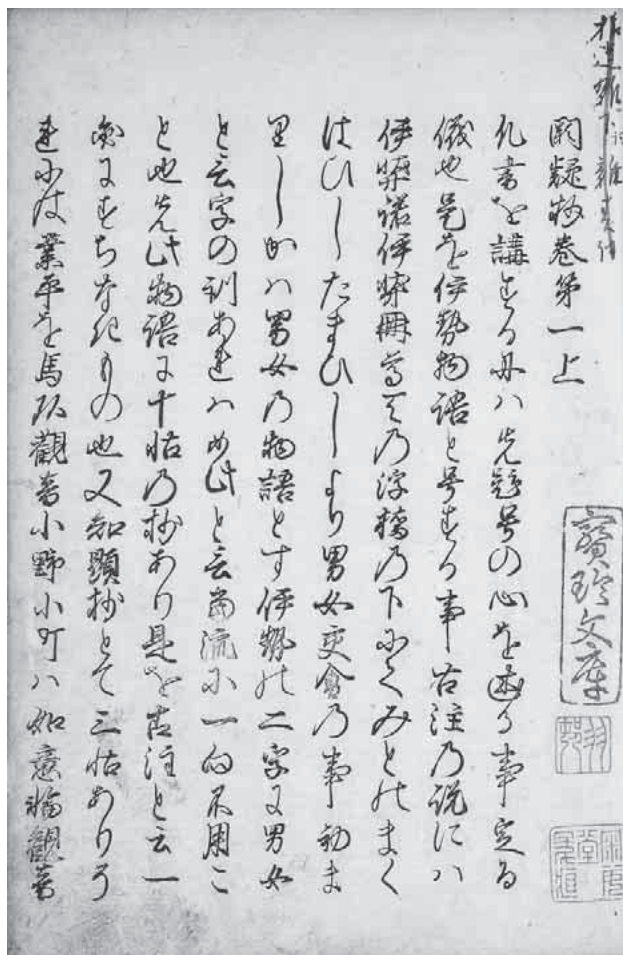 闕疑抄巻第一上
凡書を講する丹ハ先題号の心を述る事定る
儀也是を伊勢物語と号する事古注乃説にハ
伊弉諾伊弉冊尊天乃浮橋乃下尓てみとのまく
はひしたまひしより男女交會乃事初ま
里しかハ男女乃物語とす伊勢の二字に男女
と云字の訓あれハ如此と云當流尓一向不用こ
と也先此物語に十帖乃抄あり是を古注と云一
向にすちなきもの也又知顕抄とて三帖あり
連尓は業平を馬頭觀音小野小町ハ如意輪觀音
寳玲文庫